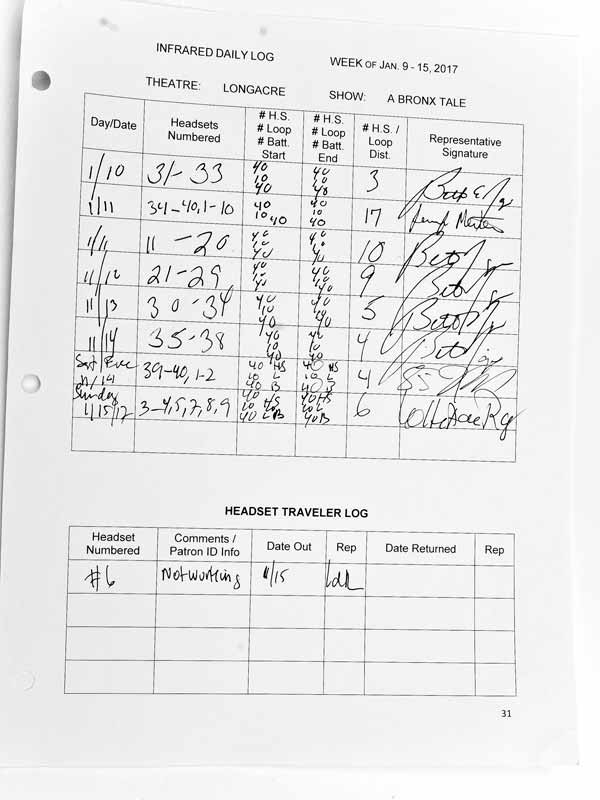 INFRARED DAILY LOG WEEK OF JAN. 9 - 15, 2017
THEATRE: LONGACRE SHOW: A BRONX TALE
Day/Date Headsets Numbered # H.S. # Loop # Batt. Start # H.S. # Loop # Batt. End # H.S. / Loop Dist. Representative Signature
1/10 31-33 40 10 40 40 10 3
1/11 34-40, 1-10 40 10 40 40 10 40 17
1/11 11-20 40 10 40 40 10 40 10
21-29 40 10 40 40 10 40 9
1/13 30-34 40 10 40 40 10 40 5
1/14 35-38 40 10 40 40 10 40 4
Sat Eve 1/14 39-40, 1-2 40 HS 10 L 40 B 40 HS 10 L 40 B 4
Sunday 1/15/17 3-4, 5, 7, 8, 9 40 HS 10 40 B 40 HS 10 L 40 B 6
HEADSET TRAVELER LOG
Headset Numbered Comments / Patron ID Info Date Out Rep Date Returned Rep
#6 Not working 1/15
31